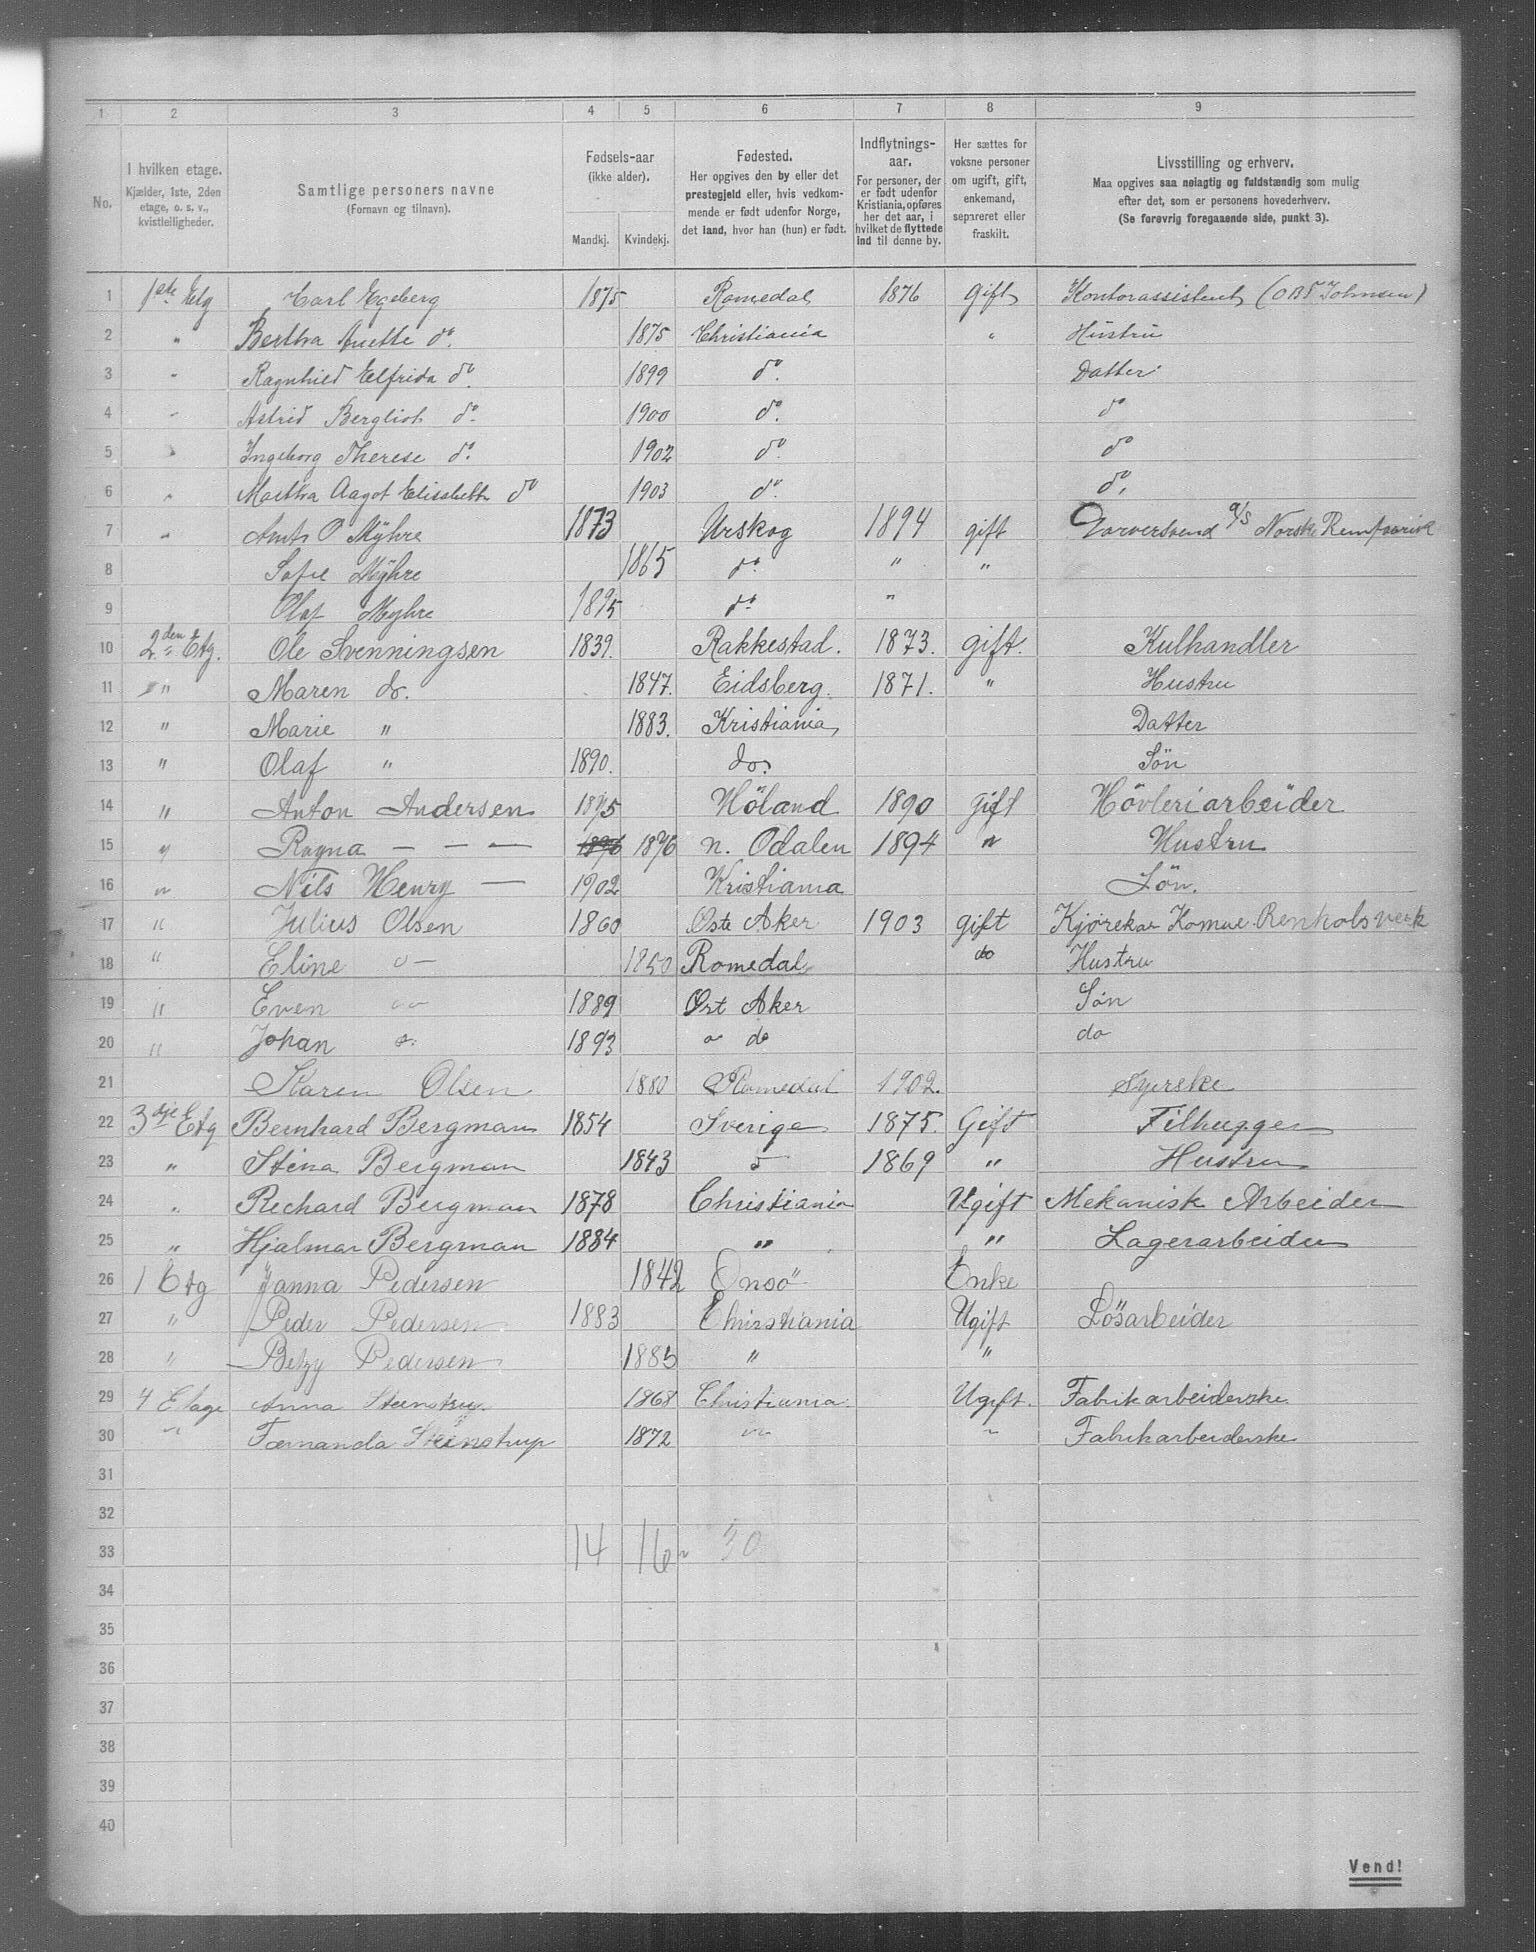 1 2 3 4 5 6 7 8 9
No.
I hvilken etage.
Kjælder, 1ste, 2den
etage, o. s. v.,
kvistleiligheder.
Samtlige personers navne
(Fornavn og tilnavn).
Fødsels-aar
(ikke alder).
Mandkj. Kvindekj.
Fødested.
Her opgives den by eller det
prestegjeld eller, hvis vedkom-
mende er født udenfor Norge,
det land, hvor han (hun) er født.
Indflytnings-
aar.
For personer, der
er født udenfor
Kristiania, opføres
her det aar, i
hvilket de flyttede
ind til denne by.
Her sættes for
voksne personer
om ugift, gift,
enkemand,
separeret eller
fraskilt.
Livsstilling og erhverv.
Maa opgives saa nøiagtig og fuldstændig som mulig
efter det, som er personens hovederhverv.
(Se forøvrig foregaaende side, punkt 3).
1 1ste Etg Carl Egeberg 1875 Romedal 1876 Gift Kontorassistent (OBT Johnsen)
2 " Bertha Anette do. 1875 Christiania " Hustru
3 " Ragnhild Elfrida do. 1899 do. Datter
4 " Astrid Bergliot do. 1900 do. do
5 " Ingeborg Therese do. 1902 do. do
6 " Martha Aagot Elisabeth do 1903 do. do.
7 " O Myhre 1873 Urskog 1894 gift Garversvend a/s Norske Remfabrik
8 Sofie Myhre 1865 do. " "
9 Olaf Myhre 1895 do. "
10 2den Etg. Ole Svenningsen 1839. Rakkestad. 1873. gift. Kulhandler
11 " Maren do. 1847. Eidsberg. 1871. " Hustru
12 " Marie " 1883. Kristiania Datter
13 " Olaf " 1890. do. Sön
14 " Anton Andersen 1875 Höland 1890 gift Hövleriarbeider
15 " Ragna — — — 1876 1876 n. Odalen 1894 " Hustru
16 " Nils Henry — 1902 Kristiania Sön.
17 " Julius Olsen 1860 Øste Aker 1903 gift Kjørekar Komue Renholsverk
18 " Eline o— 1850 Romedal do Hustru
19 " Even 1889 Øst Aker Søn
20 " Johan 1893 do do
21 Karen Olsen 1880 Romedal 1902. Syerske
22 3dje Etg Bernhard Bergman 1854 Sverige 1875. Gift Filhugger
23 " Stina Bergman 1843 1869 " Hustru
24 " Rechard Bergman 1878 Christiania Ugift Mekanisk Arbeider
25 " Hjalmar Bergman 1884 " " Lagerarbeider
26 1 Etg Janna Pedersen 1842 Onsö Enke
27 " Peder Pedersen 1883 Christiania Ugift Lösarbeider
28 " Betzy Pedersen 1885 " "
29 4 Etage Anna Steinstrup 1868 Christiania. Ugift. Fabrikarbeiderske.
30 " Fernanda Steinstrup 1872 " " Fabrikarbeiderske
31
32
33 14 16 30
34
35
36
37
38
39
40
Vend!